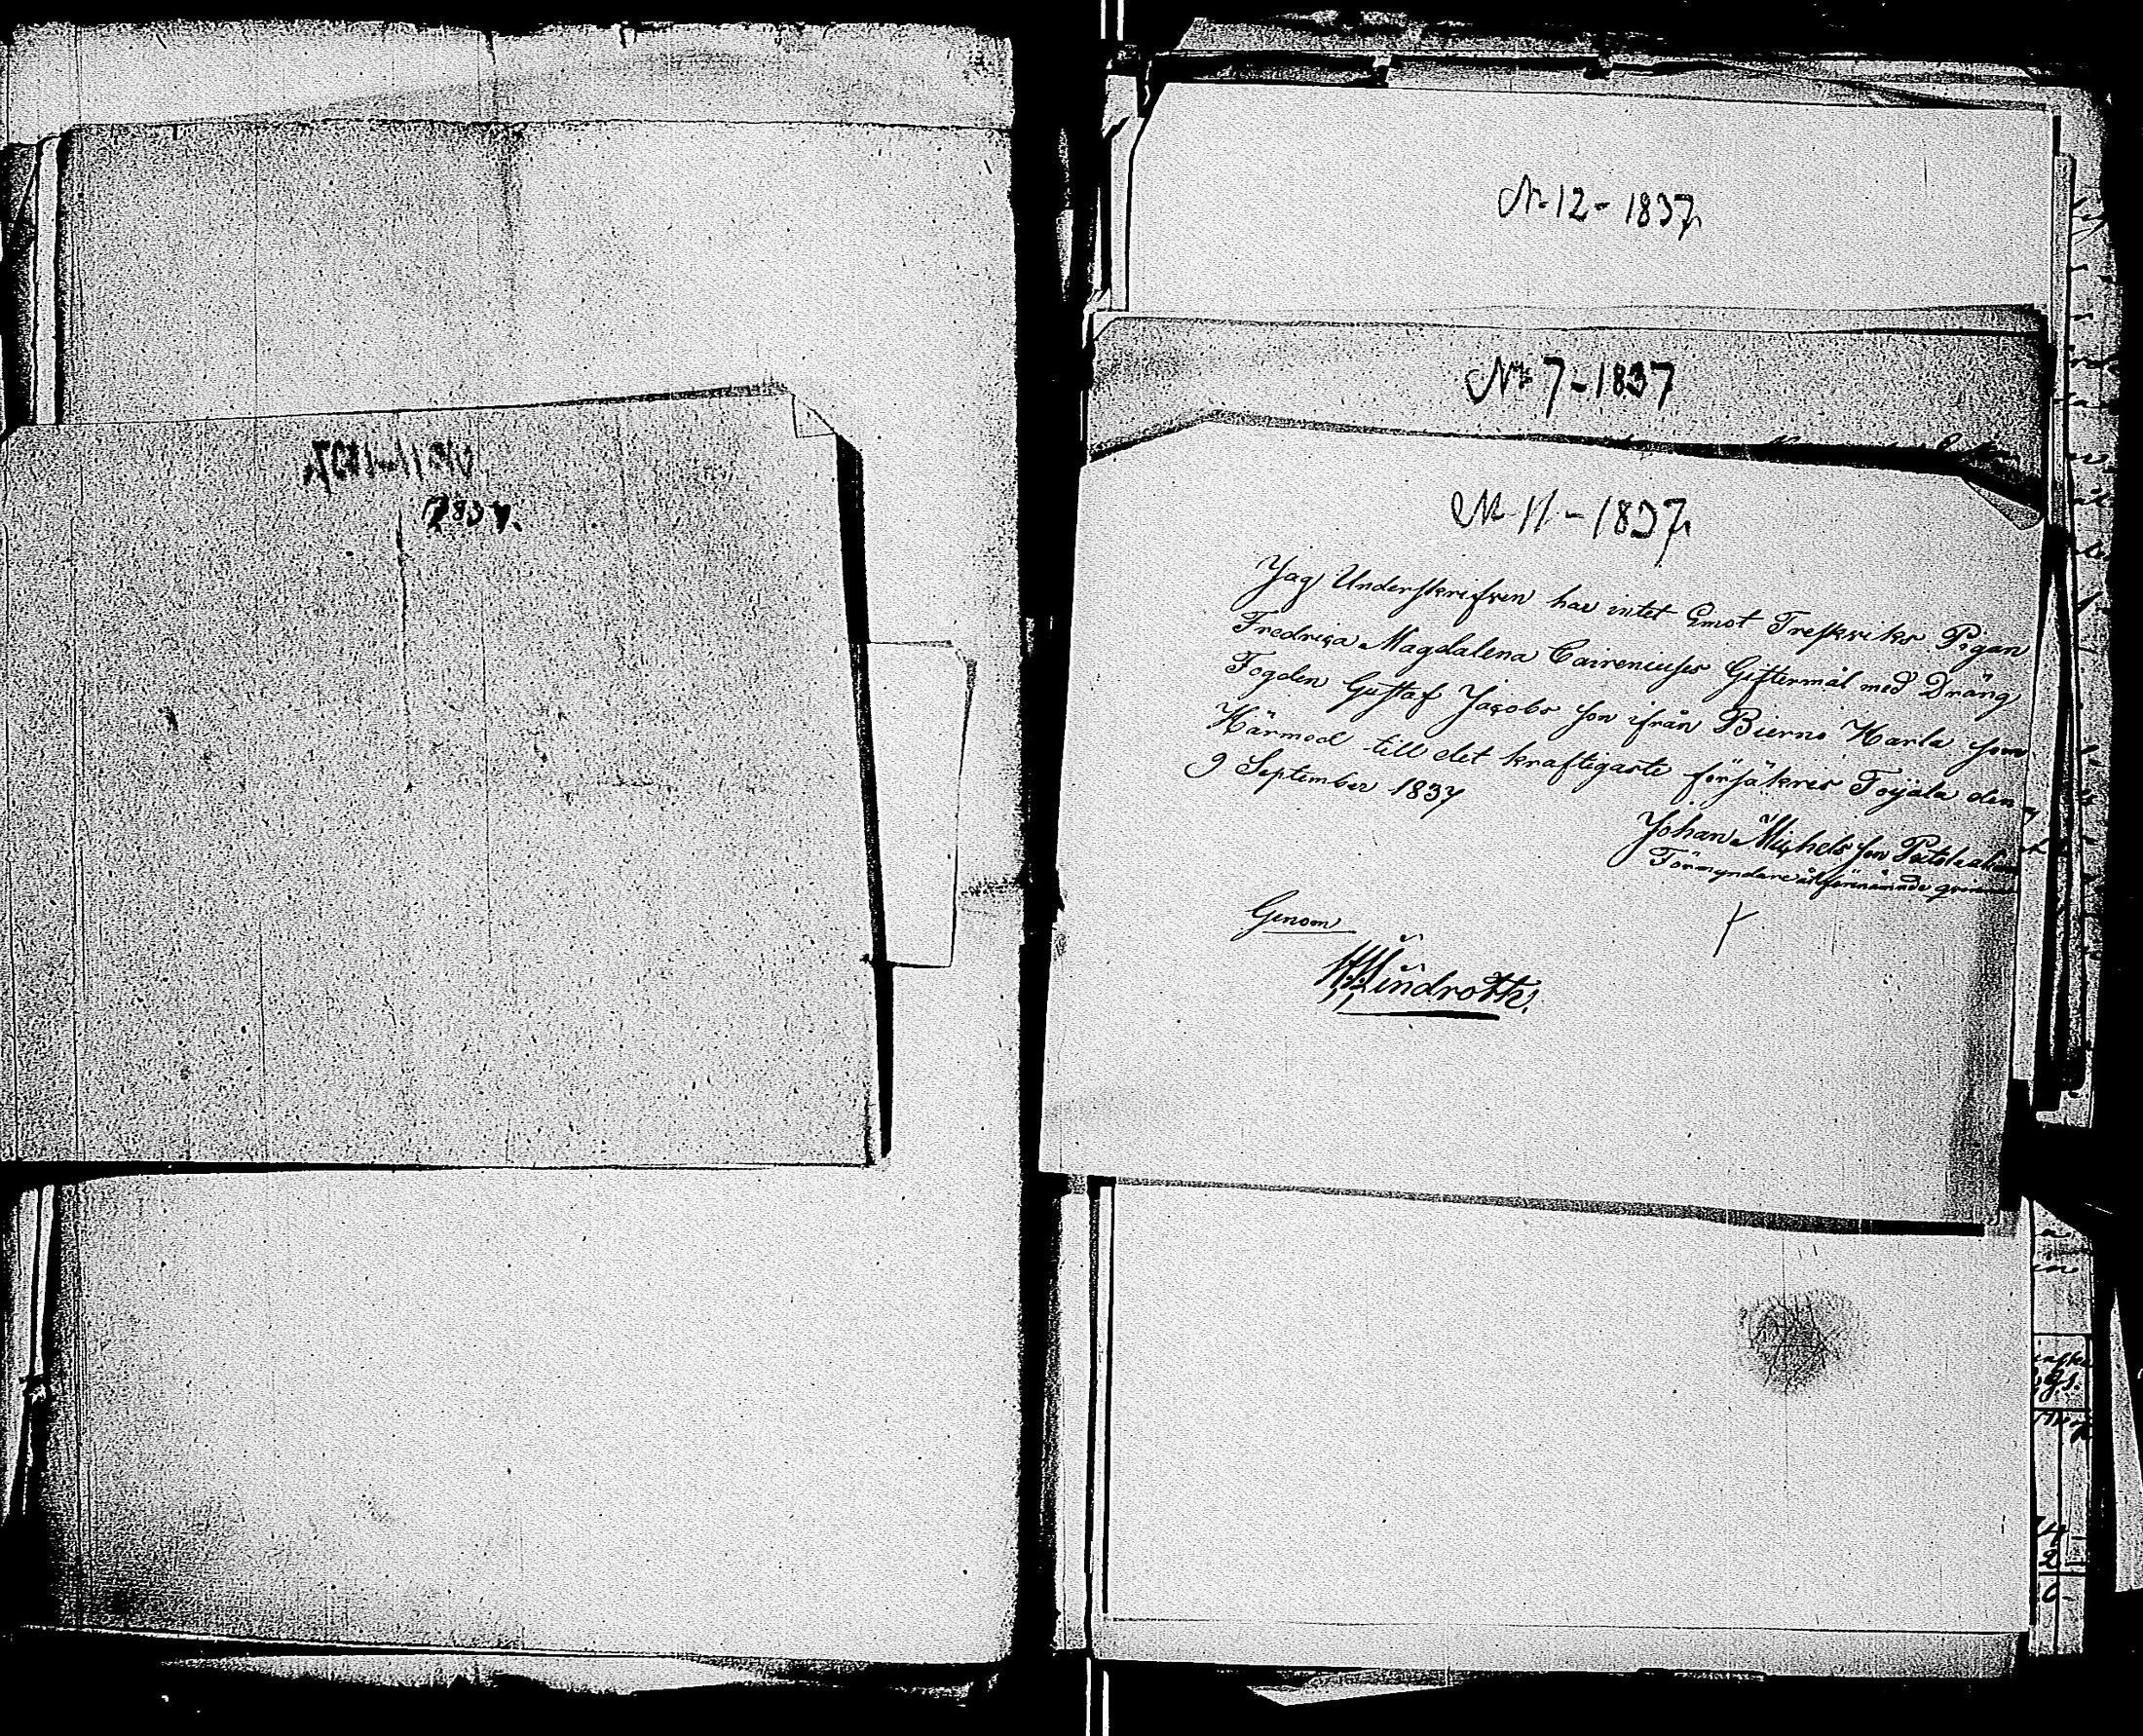 1837.
№ 12 - 1837
№ 7 - 1837
№ 11 - 1837
Jag Underskrifven har intet Emot Treskriks Pigan
Fredrica Magdalena Caireniuses Giftermål med Dräng
Fogden Gustaf Jacobs son ifrån Bierno Karla som
Härmed till det kraftigaste försäkres Toijala den
9 September 1837
Johan Michels son
Förmyndare
Genom
Lindroth